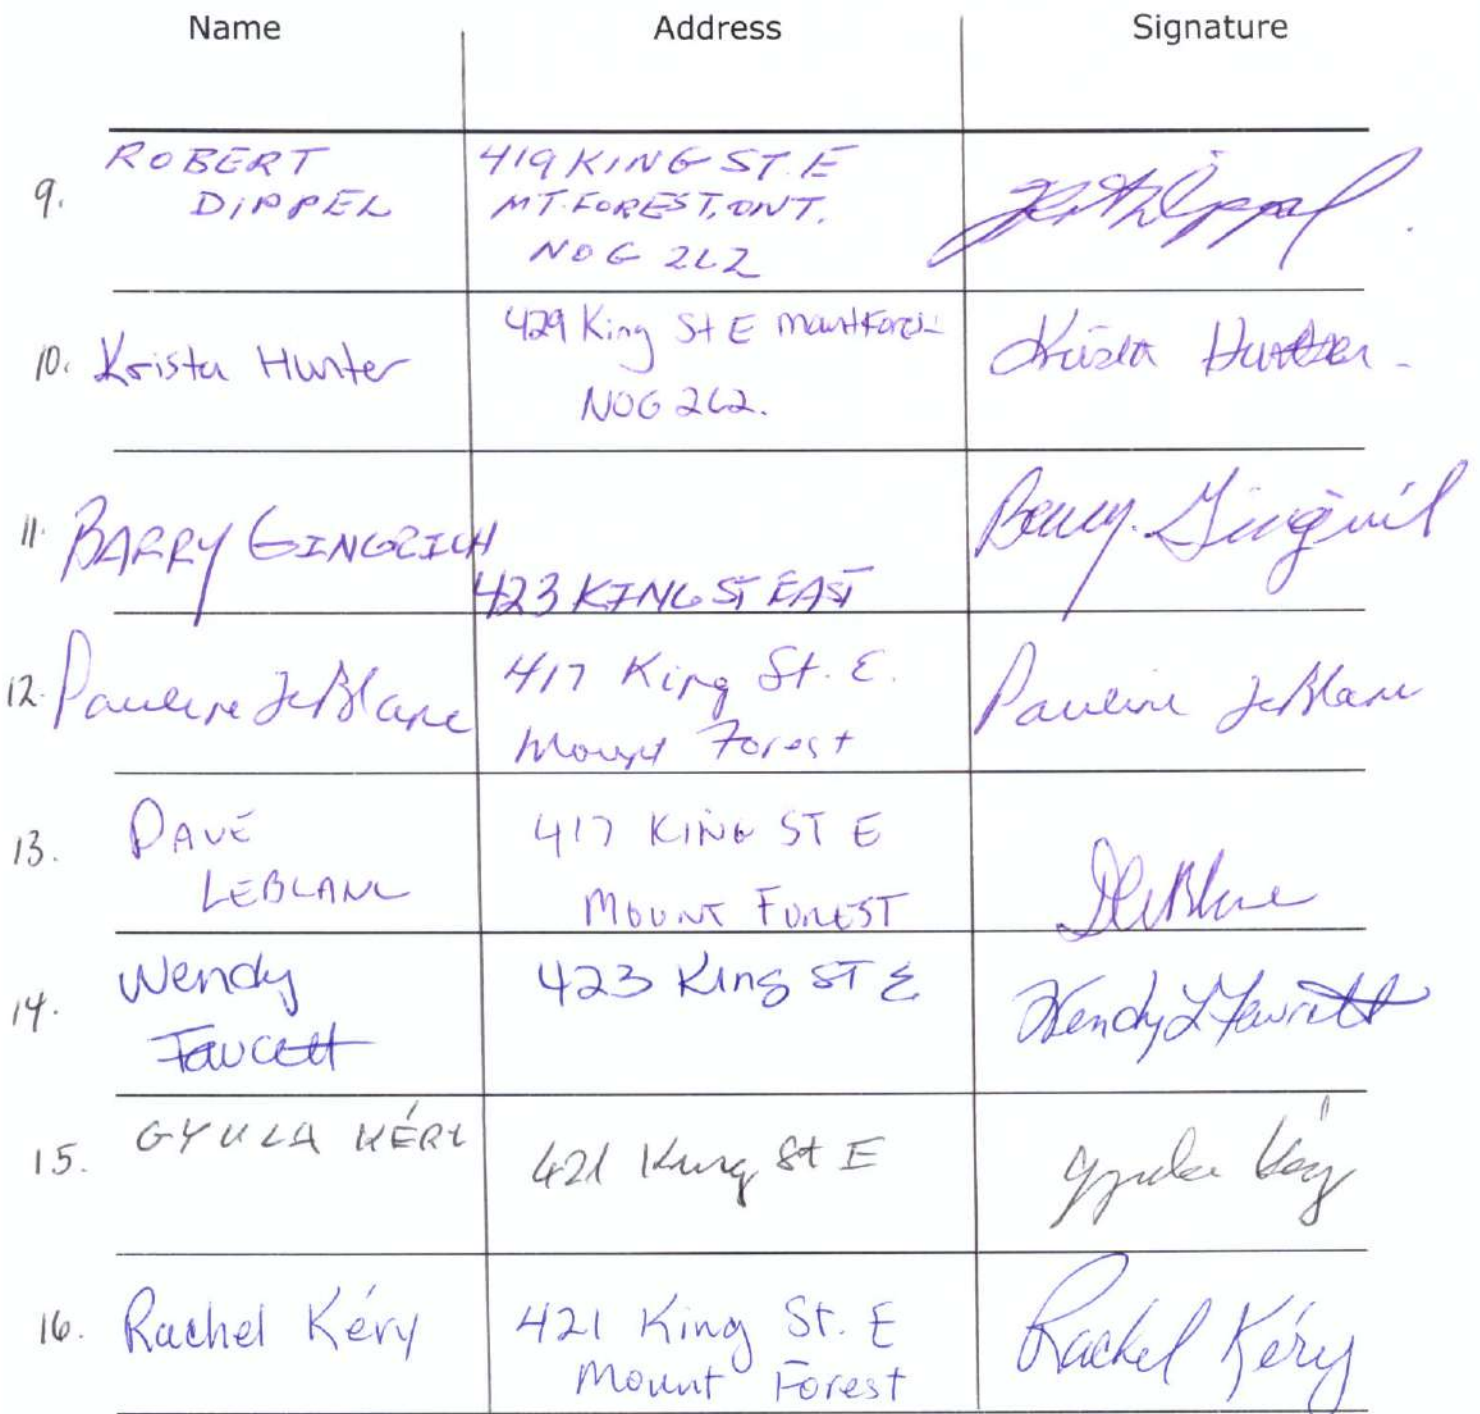 Name Address Signature
9. ROBERT DIPPEL
419 KING ST. E
MT. FOREST, ONT.
N0G 2L2
10. Krista Hunter
429 King St E
N0G 2L2.
Krista Hunter
11. BARRY GINGRICH
423 KING ST EAST
Barry Gingrich
12. Pauline LeBlanc
417 King St. E.
Mount Forest
Pauline LeBlanc
13. DAVE
LEBLANC
417 KING ST E
MOUNT FOREST
DLeBlanc
14. Wendy
Faucett
423 King ST E
Wendy L Fawcett
15. GYULA KÉRY
421 King St E
Gyula Kéry
16. Rachel Kéry
421 King St. E
Mount Forest
Rachel Kéry